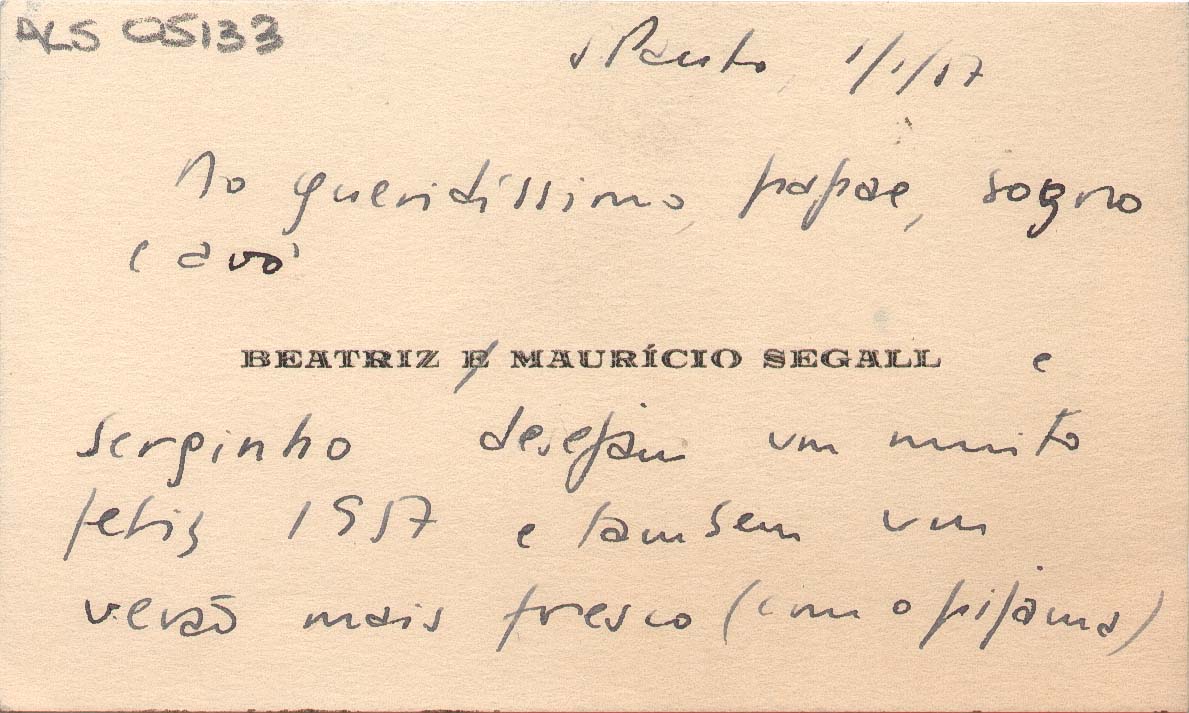 ALS 05133
S Paulo, 1/1/57
Ao queridíssimo, papae, sogro
e avô
BEATRIZ E MAURÍCIO SEGALL e
Serginho desejam um muito
feliz 1957 e tambem um
verão mais fresco (com o pijama)